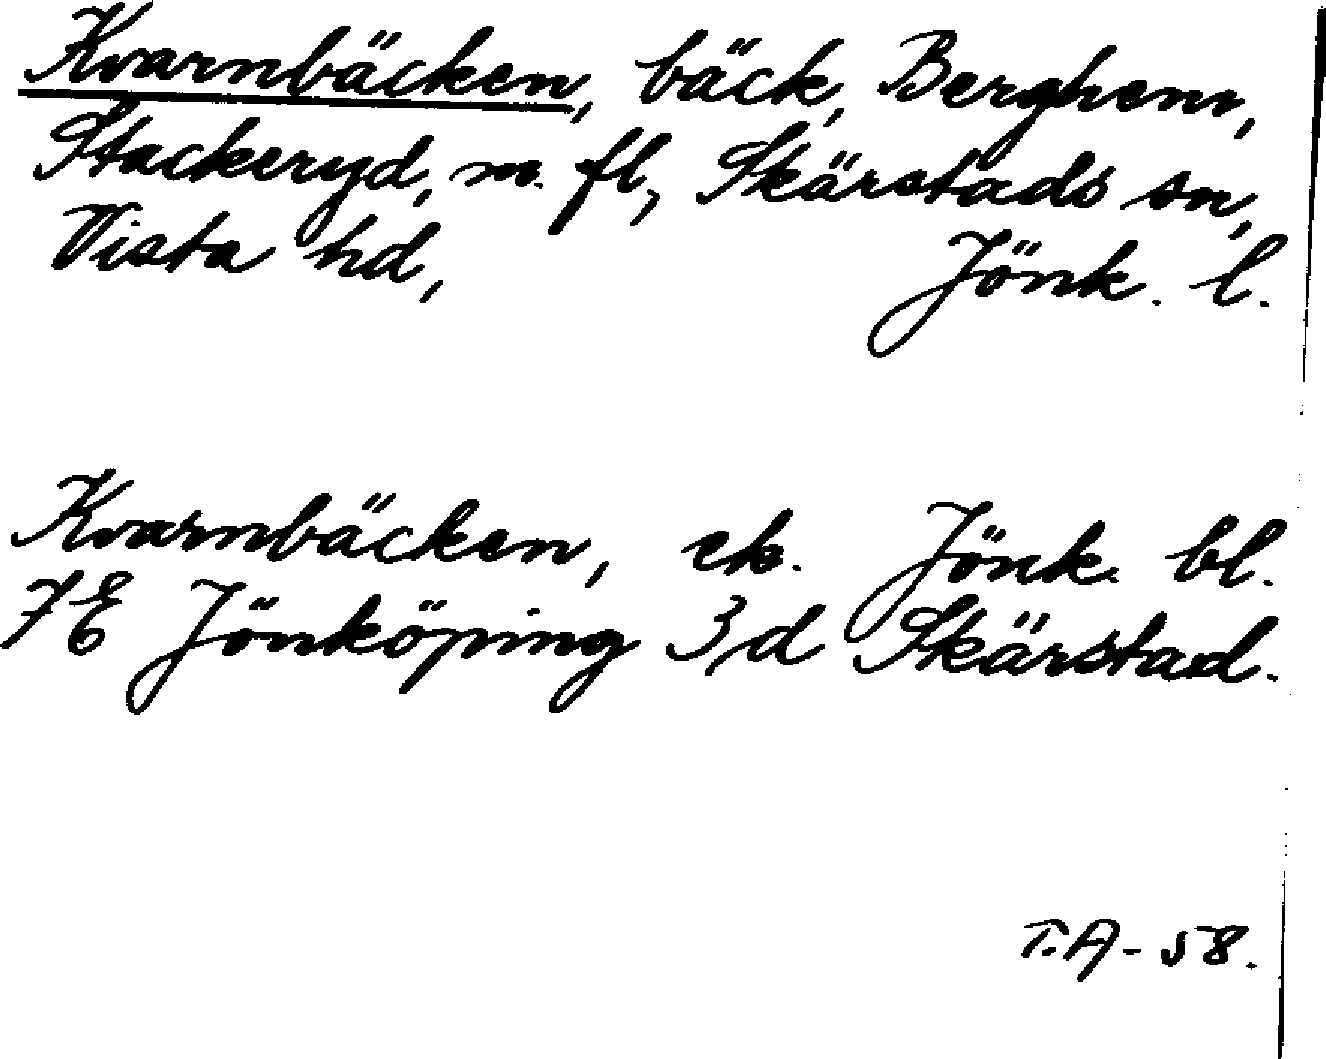 Kvarnbäcken, bäck, Berghem,
Stackeryd, m. fl, Skärstads sn,
Vista hd, Jönk. l.
Kvarnbäcken, ek. Jönk. bl.
7E Jönköping 3,d Skärstad.
T.A-58.